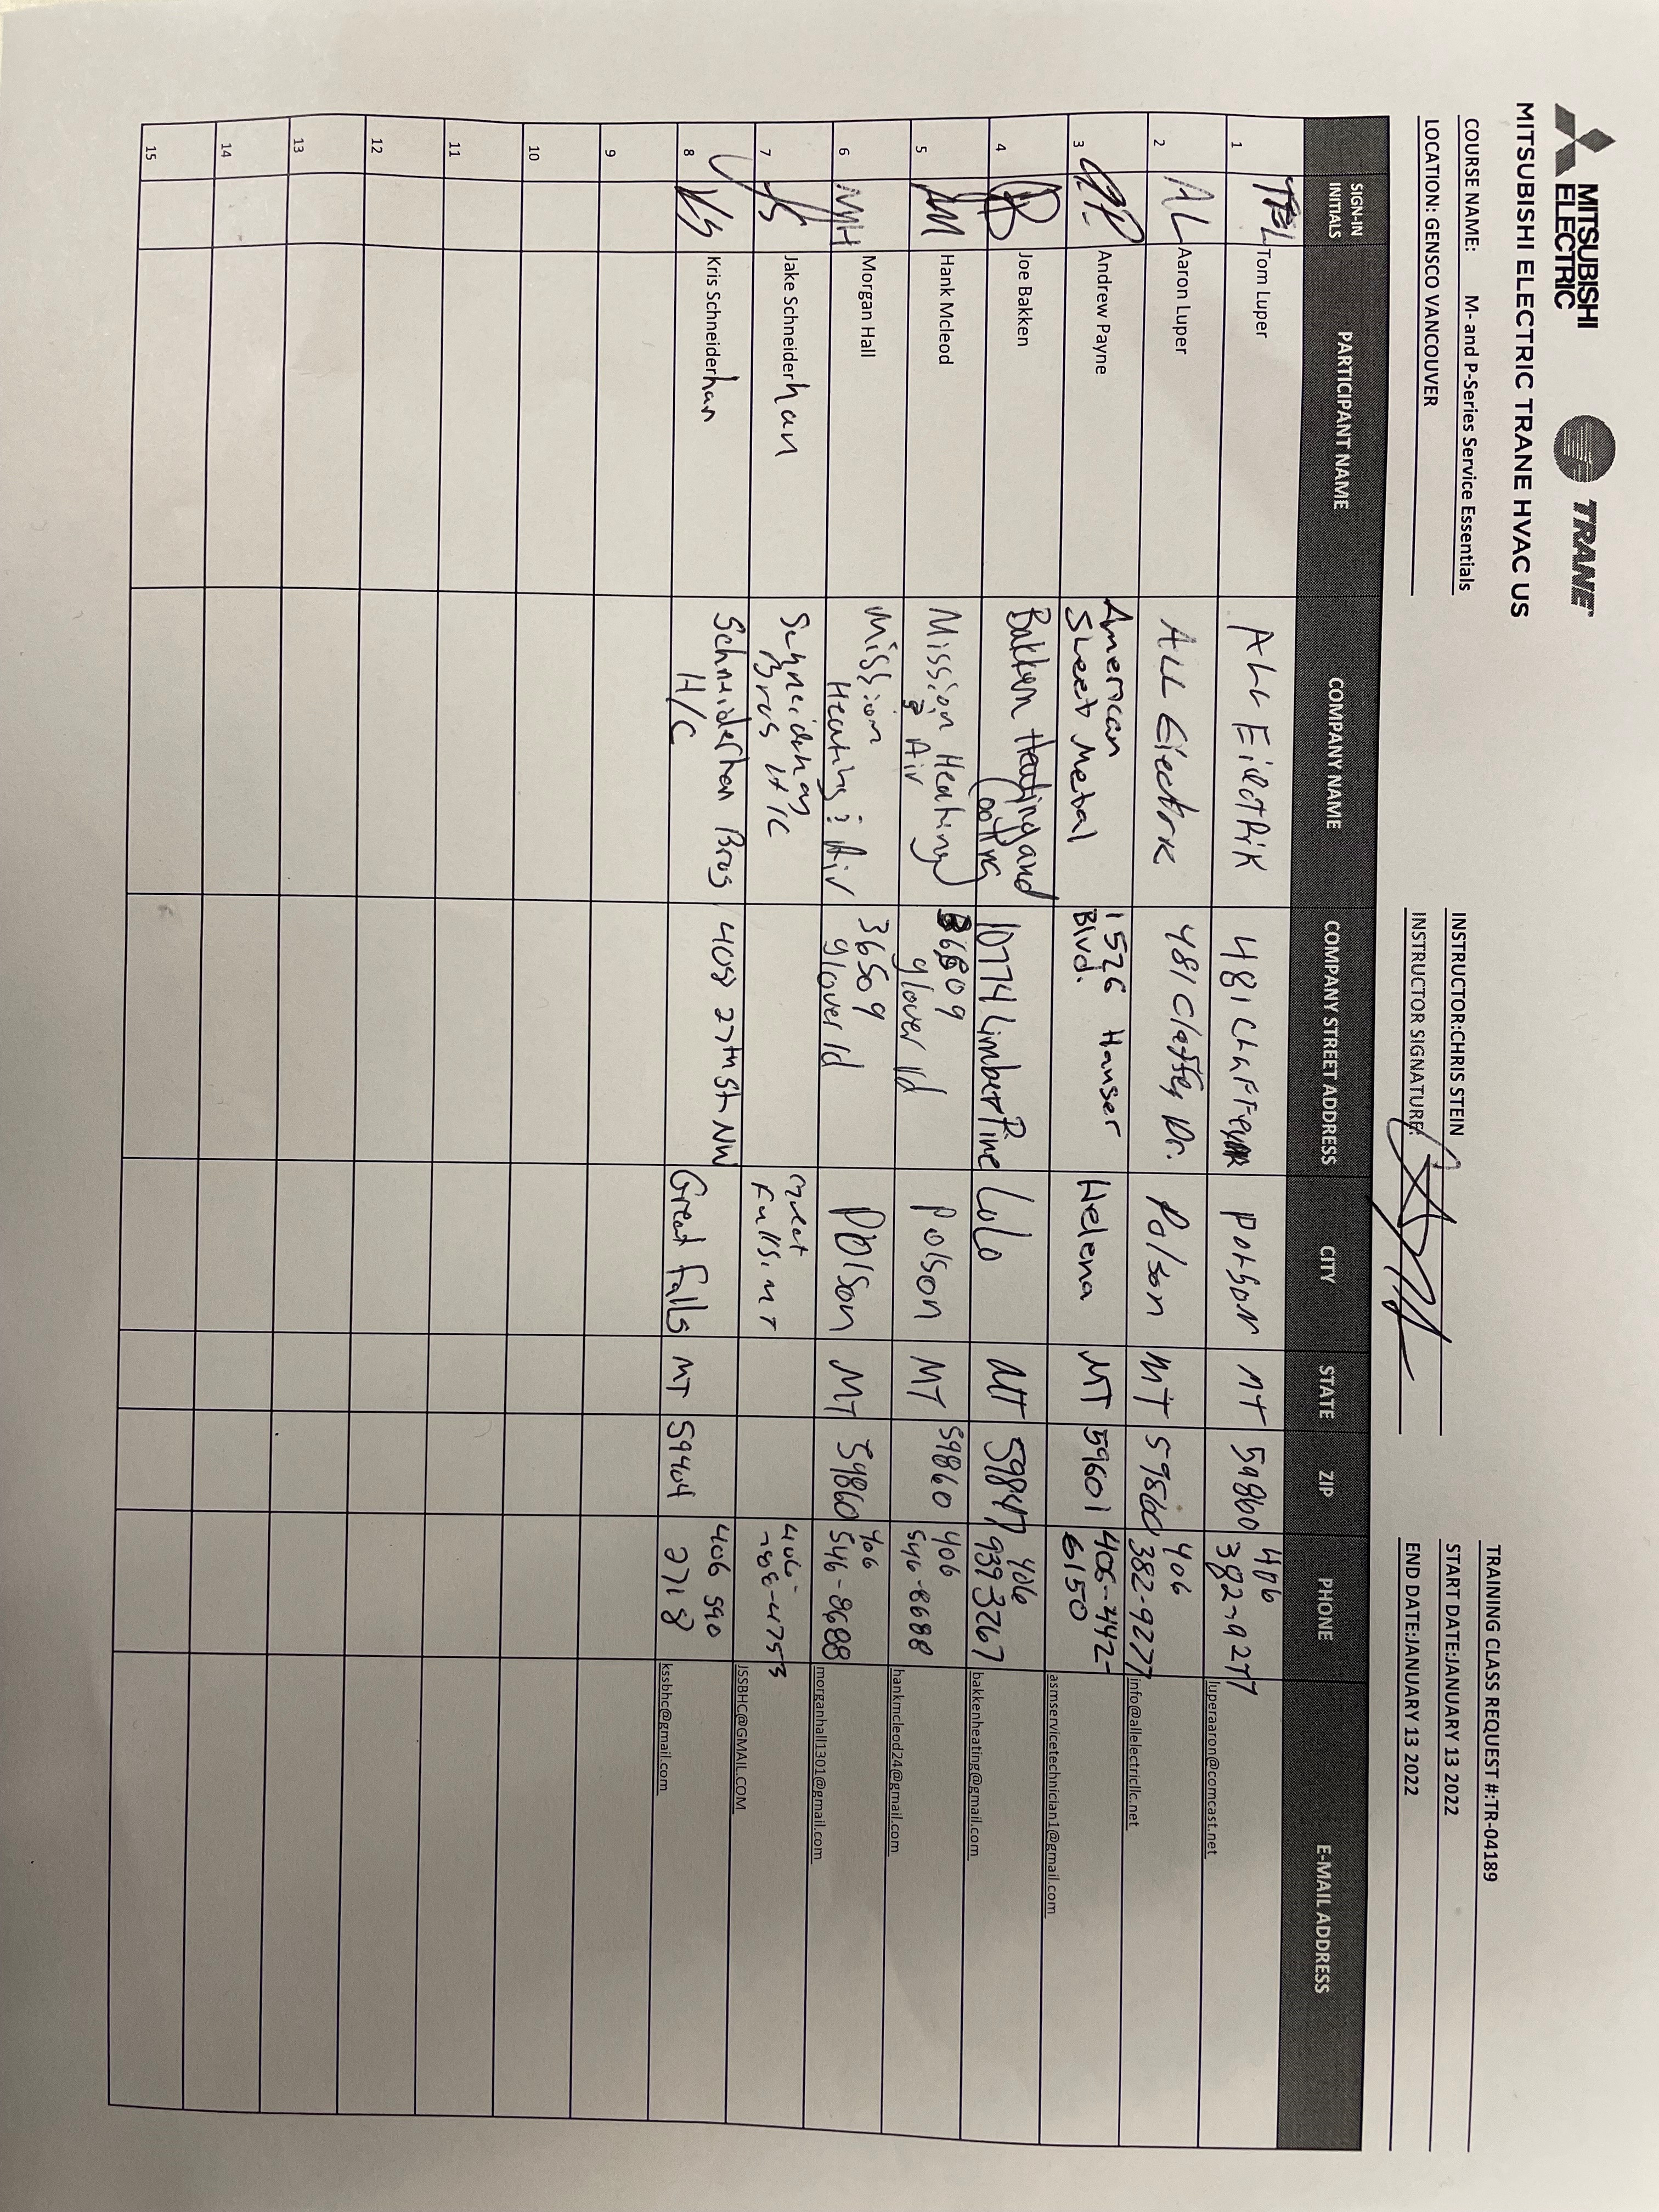 MITSUBISHI ELECTRIC TRANE
MITSUBISHI ELECTRIC TRANE HVAC US
COURSE NAME: M- and P-Series Service Essentials
LOCATION: GENSCO VANCOUVER
INSTRUCTOR:CHRIS STEIN
INSTRUCTOR SIGNATURE:
TRAINING CLASS REQUEST #:TR-04189
START DATE:JANUARY 13 2022
END DATE:JANUARY 13 2022
SIGN-IN INITIALS PARTICIPANT NAME COMPANY NAME COMPANY STREET ADDRESS CITY STATE ZIP PHONE E-MAIL ADDRESS
1 Tom Luper ALL 481 MT 59860 406 382-9277 luperaaron@comcast.net
2 AL Aaron Luper ALL Electric 481 Claffey Dr. Polson MT 59860 406 382-9277 info@allelectricllc.net
3 AP Andrew Payne American Sheet Metal 1526 Hauser Blvd. Helena MT 59601 406-442-6150 asmservicetechnician1@gmail.com
4 JB Joe Bakken Bakken Heating and Cooling 10774 Limber Pine Lolo MT 59847 406 939-3267 bakkenheating@gmail.com
5 HM Hank Mcleod Mission Heating & Air glover rd Polson MT 59860 406 546-8688 hankmcleod24@gmail.com
6 MH Morgan Hall Mission Heating & Air 36509 glover rd Polson MT 59860 406 546-8688 morganhall1301@gmail.com
7 JS Jake Schneiderhan Bros H/C Great Falls, MT 406- JSSBHC@GMAIL.COM
8 KS Kris Schneiderhan Schneiderhan Bros H/C 408 27th St NW Great Falls MT 59404 406 590 2718 kssbhc@gmail.com
9
10
11
12
13
14
15